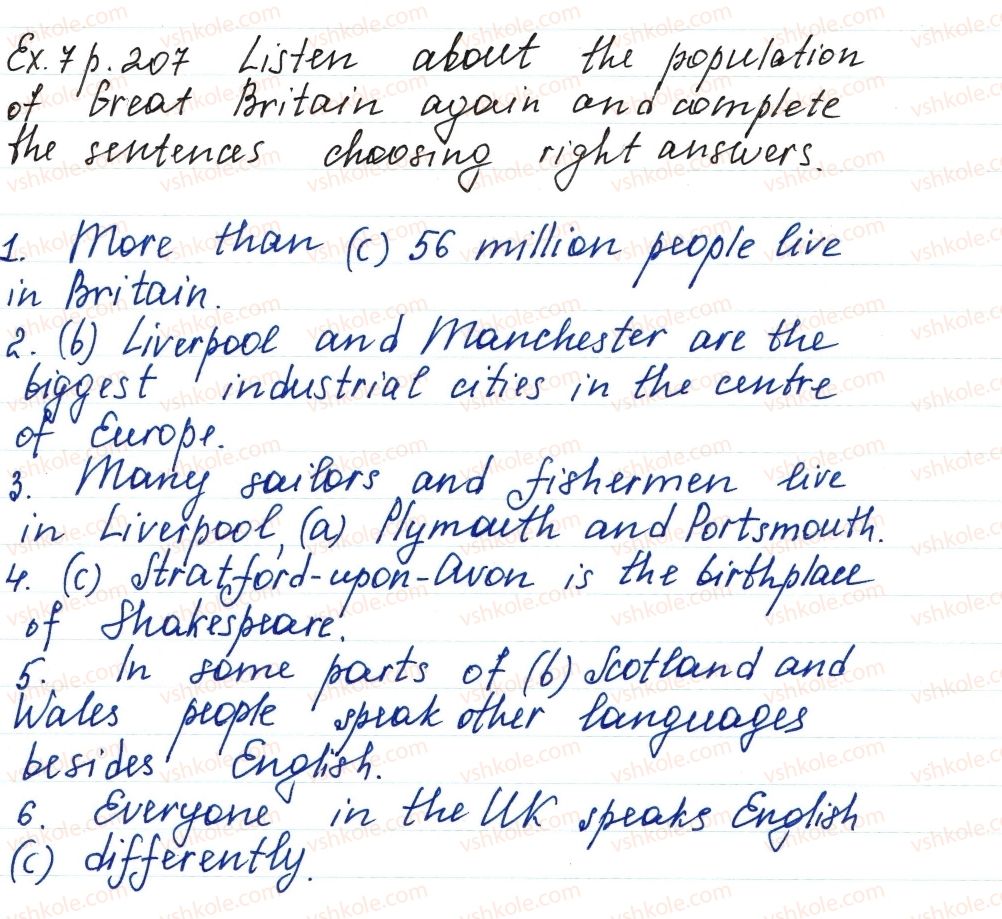 Ex. 7 p. 207 Listen about the population
of Great Britain again and complete
the sentences choosing right answers.
1. More than (c) 56 million people live
in Britain.
2. (b) Liverpool and Manchester are the
biggest industrial cities in the centre
of Europe.
3. Many sailors and fishermen live
in Liverpool, (a) Plymouth and Portsmouth.
4. (c) Stratford-upon-Avon is the birthplace
of Shakespeare.
5. In some parts of (b) Scotland and
Wales people speak other languages
besides English.
6. Everyone in the UK speaks English
(c) differently.